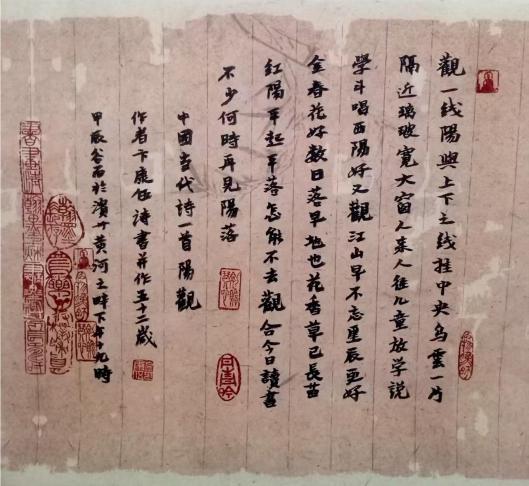 觀一线陽與上下之线挂中央乌雲一片
隔近璃玻寛大窗人来人往儿童放学説
學斗唱西陽好又觀江山早不忘星辰更好
金春花好数日落早地也花香草已長苗
红陽平起平落怎能不去觀合今日讀書
不少何時再见陽落
中國当代詩一首陽觀
作者卞 伍詩書并作五十二歲
甲辰谷雨於濱 黄河之畔下午十九時